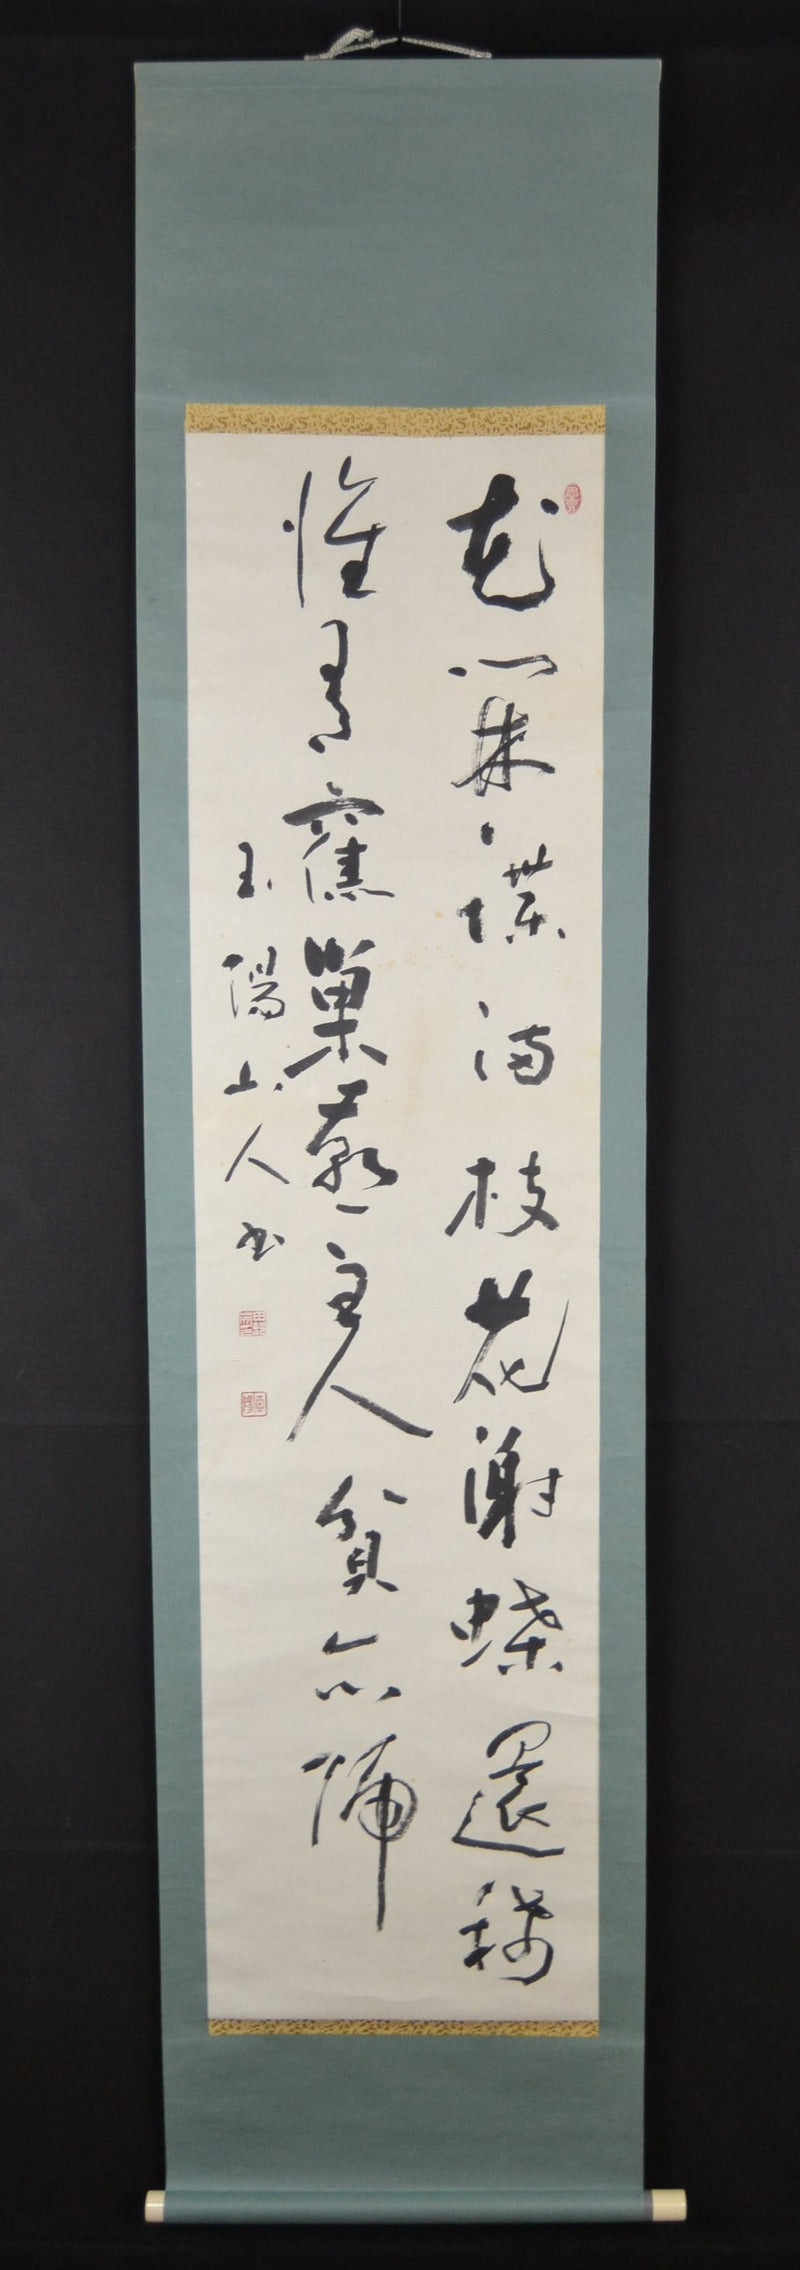 花開蝶滿枝花謝蝶還稀
惟有舊巢燕主人貧亦歸
玉陽山人書